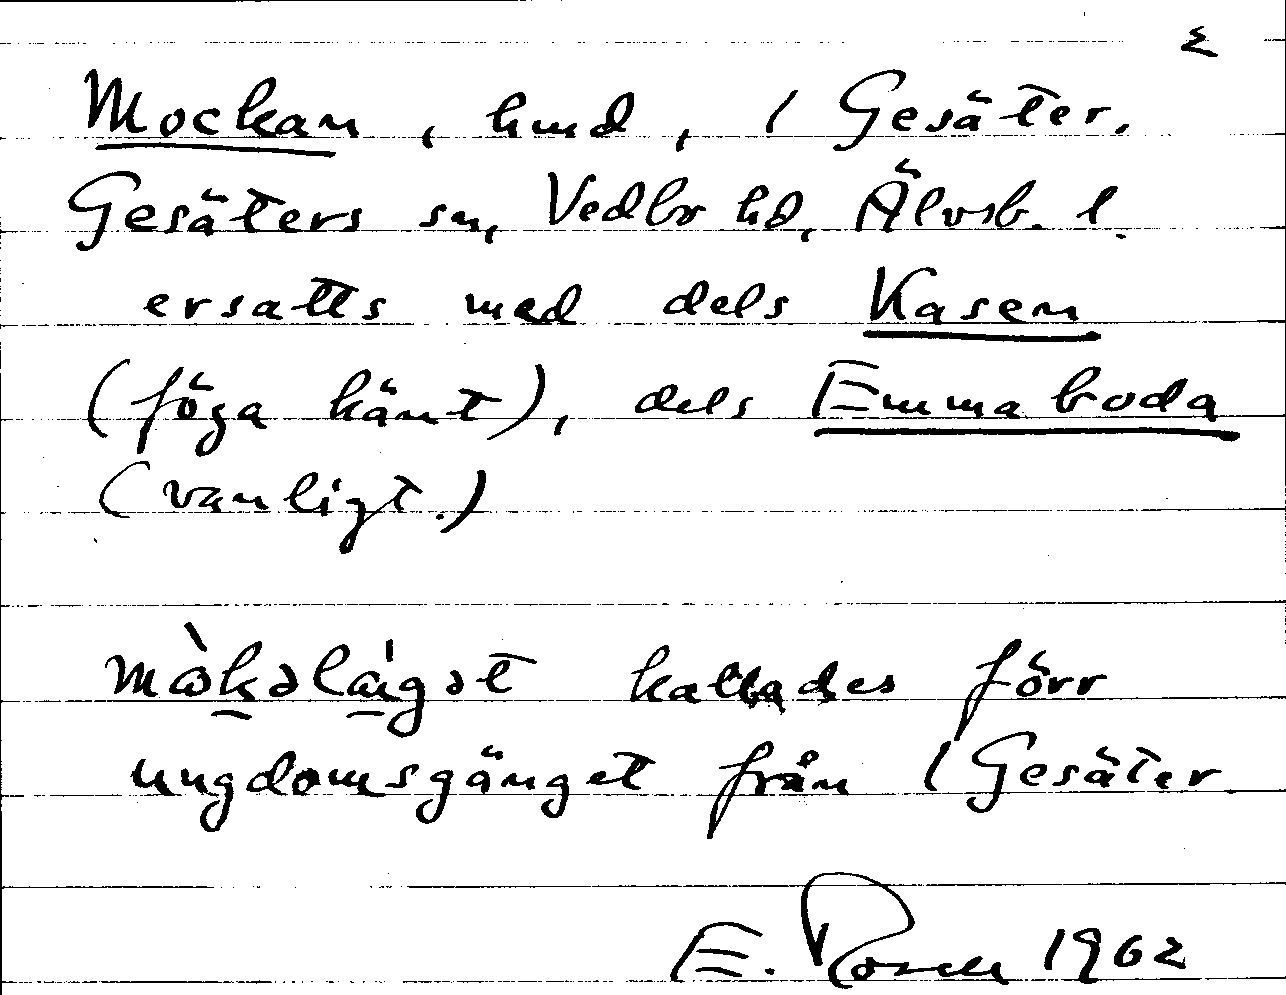 2
Mockan, hmd, 1 Gesäter.
Gesäters sn, Vedbo hd, Älvsb. l.
ersatts med dels Kasen
(föga känt), dels Emmaboda
(vanligt.)
kallades förr
ungdomsgänget från 1 Gesäter.
E. 1962